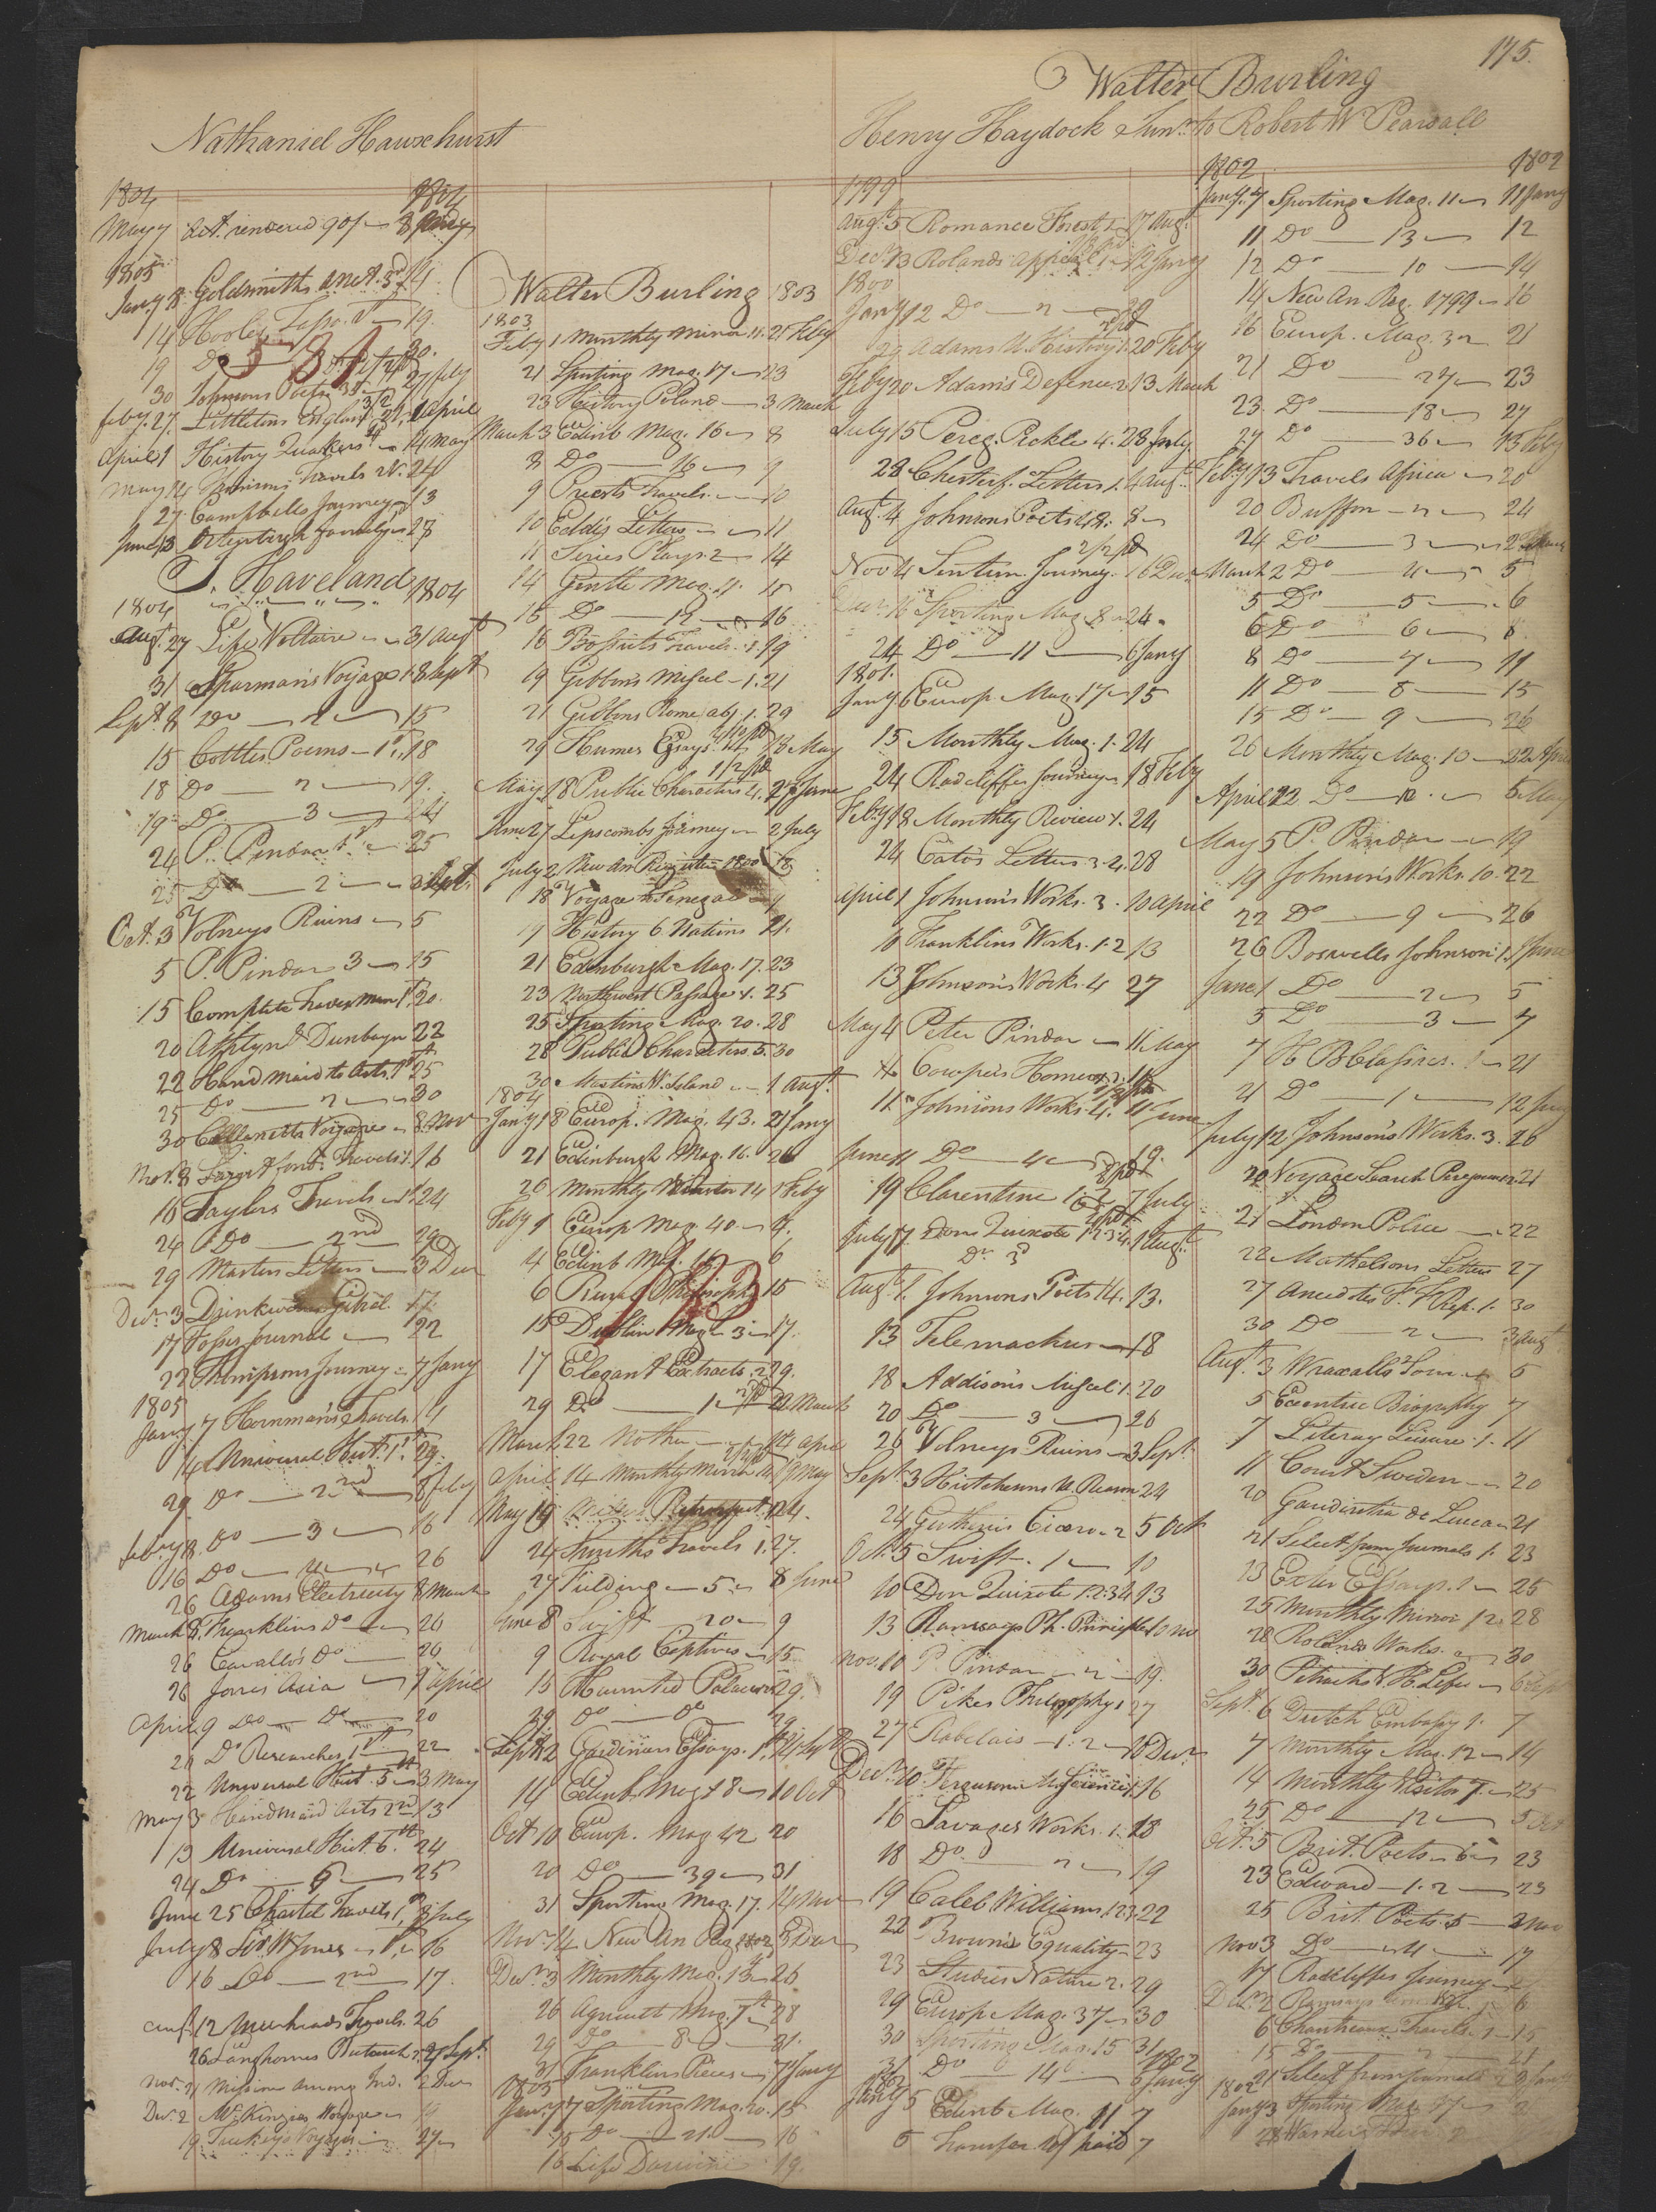 175.
Nathaniel Hawxhurst
1804 1804
May 7 Act. rendered 90/
1805
Jany 8 Goldsmiths
14 Hooles Tasso. 19.
19 Do 30.
30 Johnsons Poets 27 feby
feby. 27. Littletons England april
April 1 History Quakers 14 May
May 14 Travels 24
27 Campbells Journey 13
June 13 27
531
J. Haveland 1804
1804
Augt. 27 Life Voltaire 31 Augt
31 Sparman's Voyage 1. 8 Sept
Sept 8 Do 2 15
15 Cottles Poems 1st. 18
18 Do 2 19.
19 Do 3 24
24 P. Pindar 1st 25
25 Do 2 3 Octr
Oct. 3 Volneys Ruins 5
5 P. Pindar 3 15
15 Complete 1st 20.
20 Athlyn & Dunbayn 22
22 Hand maid to Arts 1st 25
25 Do 2 30
30 Voyage 8 Nov
Nov. 8 Travels 1. 16
16 Taylors Travels 1st 24
24 Do 2nd 29
29 Masters Letters 3 Decr
Decr. 3 Drinkwaters Gibral. 17.
17 Journal 22
22 Thompsons Journey 7 Jany
1805
Jany. 7 Hornman's Travels. 14
14 Universal Hist. 1st. 29.
29. Do 2nd 8 feby
feby 8. Do 3 16
16 Do 4 26
26 Adams Electricity 8 March
March 8. Franklins Do 26
26 Cavallo's Do 26
26 Jones Asia 9 April
April 9 Do Do 20
20 Do Researches 1st 22
22 Universal Hist. 5th 3 May
May 3 Handmaid Arts 2nd 13
13 Universal Hist. 6th. 24
24 Do 6 25
June 25 Travels 1st 8 July
July 8 Sir W. Jones 1st 16
16 Do 2nd 17.
12 Muirheads Travels. 26
26 Langhornes Plutarch 27 Sept.
Nov. 21 Mission among Ind. 2 Decr
Dec. 2 McKinzies Voyage 19
19 Tuckeys Voyage 27
Walter Burling 1803
1803
Feby 1 Monthly Mirror 11. 21 Feby
21 Sporting Mag. 17 23
23 History Poland 3 March
March 3 Edinb Mag. 16 8
8 Do 16 9
9 Priests Travels. 10
10 Eddis Letters 11
11 Series Plays. 2 14
14 Gentle Mag. 11. 15
15 Do 12 16
16 Travels. 1. 19
19 Gibbons Miscel 1. 21
21 Gibbons Rome abg 1. 29
29 Humes Essays 18 May
May 18 Public Characters 4. 27 June
June 27 Lipscombs Journey 2 July
July 2 New An Register 1800 18
18 Voyage to Senegal
History 6 Nations 21.
21 Edenburgh Mag. 17. 23
23 Northwest Passage 1. 25
25 Sporting Mag. 20. 28
28 Public Characters 5. 30
30 Martins W. Island 1 Augt.
1804
Jany 18 Europ. Mag. 43. 21 Jany
21 Edinburgh Mag. 16. 26
26 Monthly 14 1 Feby
Feby 1 Europ Mag. 40 4.
4 Edinb Mag. 16 6
6 Rural Philosophy 15
15 Dublin Mag 3 17.
123
17 Elegant Extracts. 2 29.
29 Do 1 22 March
March 22 14 April
April 14 Monthly Mirror 19 May
May 19 Retrospect 1. 24.
24 Smiths Travels 1. 27.
27 Fielding 5 8 June
June 8 Swift 20 9
9 Royal Captives 15
15 Haunted Palace 29.
29 Do Do 29
Sept 2 Gardiners Essays. 1. 14 Sept
14 Edinb. Mag 18 10 Oct
Oct 10 Europ. Mag 42 20
20 Do 39 31
31 Sporting Mag. 17. 14 Nov
Nov. 14 New An Reg. 1802 3 Decr
Decr. 3 Monthly Mag. 13 26
26 Agricult Mag. 7th 28
29 Do 8 31.
31 Franklins Pieces 7 Jany
1805
Jany. 7 Sporting Mag. 20. 15
15 Do 21. 16
16 Life Darwin 19.
Walter Burling
Henry Haydock Junr. to Robert W Pearsall
1799
Augt. 5 Romance Forest 1. 17 Augt.
Decr. 13 Rolands appeal 1 12 Jany
1800
Jany 12 Do 2 29
29 Adams U. History 1. 20 Feby
Feby 20 Adam's Defence 2 13 March
July 15 Pereg. Pickle 4. 28 July
28 Chesterf. Letters 1. 4 Augt.
Augt. 4 Johnson's Poets 48. 8
2/2 pd
Nov 4 Sentim. Journey. 16 Decr
Decr. 16 Sporting Mag. 8 24
24 Do 11 6 Jany
1801.
Jany 6 Europ Mag. 17 15
15 Monthly Mag. 1. 24
24 Radcliffes Journey 18 Feby
Feby 18 Monthly Review 1. 24
24 Cato's Letters 3. 4. 28
April 1 Johnson's Works. 3. 10 April
10 Franklins Works. 1. 2 13
13 Johnson's Works. 4 27
May 4 Peter Pindar 11 May
Cowper's Homer 1. 2. 11
11 Johnson's Works. 4. 11 June
June 11 Do 4 19.
19 Clarentine 1. 2 7 July
July 17 Don Quixote 1. 2 3 4. 1 Augt.
Do 3
Augt. 1. Johnsons Poets 14. 13.
13 Telemachus 18
18 Addison's Miscel 1. 20
20 Do 3 26
26 Volneys Ruins 3 Sept.
Sept. 3 Hutchesons U. Reason 24
24 Gutheries Cicero 2 5 Oct
Oct. 5 Swift. 1 10
10 Don Quixote 1. 2. 3 4. 13
13 Ramsays Ph. Principles 10 Nov
Nov. 10 P. Pindar 2 19.
19 Pikes Philosophy 27
27 Rabelais 1. 2 10 Decr
Decr. 10 Fergusons M. Science 1. 16
16 Savages Works. 1. 18
18 Do 2 19
19 Caleb Williams 1. 2. 3. 22
22 Browns Equality 23
23 Studies Nature 2. 29
29 Europ Mag. 37 30
30 Sporting Mag. 15 31
1802
31 Do 14 5 Jany
1802
Jany 5 Edinb Mag. 11 7
5 Transfer 10/ paid 7
1802 1802
Jany. 7 Sporting Mag. 11 11 Jany
11 Do 13 12
12 Do 10 14
14 New An. Reg. 1799 16
16 Europ. Mag. 3 21
21 Do 27 23
23. Do 18 27
27 Do 36 13 Feby
Feby 13 Travels Africa 20
20 Buffon 2 24
24 Do 3 2 March
March 2 Do 4 5
5 Do 5 6
6 Do 6 8
8 Do 7 11
11 Do 8 15
15 Do 9 26
26 Monthly Mag. 10 22 April
April 22 Do 12 5 May
May 5 P. Pindar 19
19 Johnson's Works. 10. 22
22 Do 9 26
26 Boswells Johnson 1. 1 June
June 1 Do 2 5
5 Do 3 7
7 21
21 Do 1 12 July
July 12 Johnson's Works. 3. 20
20 Voyage Search Perouse 21
21 London Police 22
22 Mathesons Letters 27
27 Anecdotes F. Rep. 1. 30
30 Do 2 3 Augt
Augt. 3 Wraxalls Tour 5
5 Eccentric Biography 7
7 Literary Leisure 1. 11
11 Court Sweden 20
20 Gaudentia de Lucca 21
21 Select from Journals 1. 23
13 Exeter Essays. 1 25
25 Monthly Mirror 12 28
28 Rolands Works. 2 30
30 6 Sept
Sept. 6 Dutch Embassy 1. 7
7 Monthly Mag. 12 14
14 Monthly Visitor 7. 25
25 Do 12 5 Oct
Oct. 5 Brit. Poets 6 23
23 Edward 1. 2 25
25 Brit Poets. 5 3 Nov
Nov 3 Do 4 17
17 Radcliffes Journey 2
Decr. 2 Ramsays 6
6 Travels 1 15
15 Do 2 21
21 Select from Journals 2 3 Jany
1803
Jany 3 Sporting Mag.